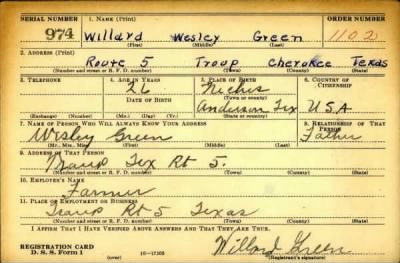 SERIAL NUMBER 1. NAME (Print) ORDER NUMBER
974 Willard Wesley Green 1102
(First) (Middle) (Last)
2. ADDRESS (Print)
Route 5 Troup Cherokee Texas
(Number and street or R. F. D. number) (Town) (County) (State)
3. TELEPHONE 4. AGE IN YEARS 5. PLACE OF BIRTH 6. COUNTRY OF CITIZENSHIP
26 Neches
DATE OF BIRTH (Town or county)
Anderson Tex U S A
(Exchange) (No.) (Mo.) (Day) (Yr.) (State or country)
7. NAME OF PERSON WHO WILL ALWAYS KNOW YOUR ADDRESS 8. RELATIONSHIP OF THAT PERSON
Wesley Green Father
(Mr., Mrs., Miss) (First) (Middle) (Last)
9. ADDRESS OF THAT PERSON
Troup Tex Rt 5.
(Number and street or R. F. D. number) (Town) (County) (State)
10. EMPLOYER'S NAME
Farmer
11. PLACE OF EMPLOYMENT OR BUSINESS
Troup Rt 5 Texas
(Number and street or R. F. D. number) (Town) (County) (State)
I AFFIRM THAT I HAVE VERIFIED ABOVE ANSWERS AND THAT THEY ARE TRUE.
REGISTRATION CARD Willard Green
D. S. S. Form 1 (over) (Registrant's signature)